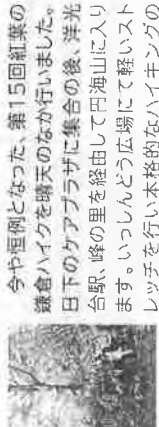 今や恒例となった、第15回紅葉の
鎌倉ハイクを晴天のなか行いました。
日下のケアプラザに集合の後、洋光
台駅、峰の里を経由して円海山に入り
ます。いっしんどう広場にて軽いスト
レッチを行い本格的なハイキングの